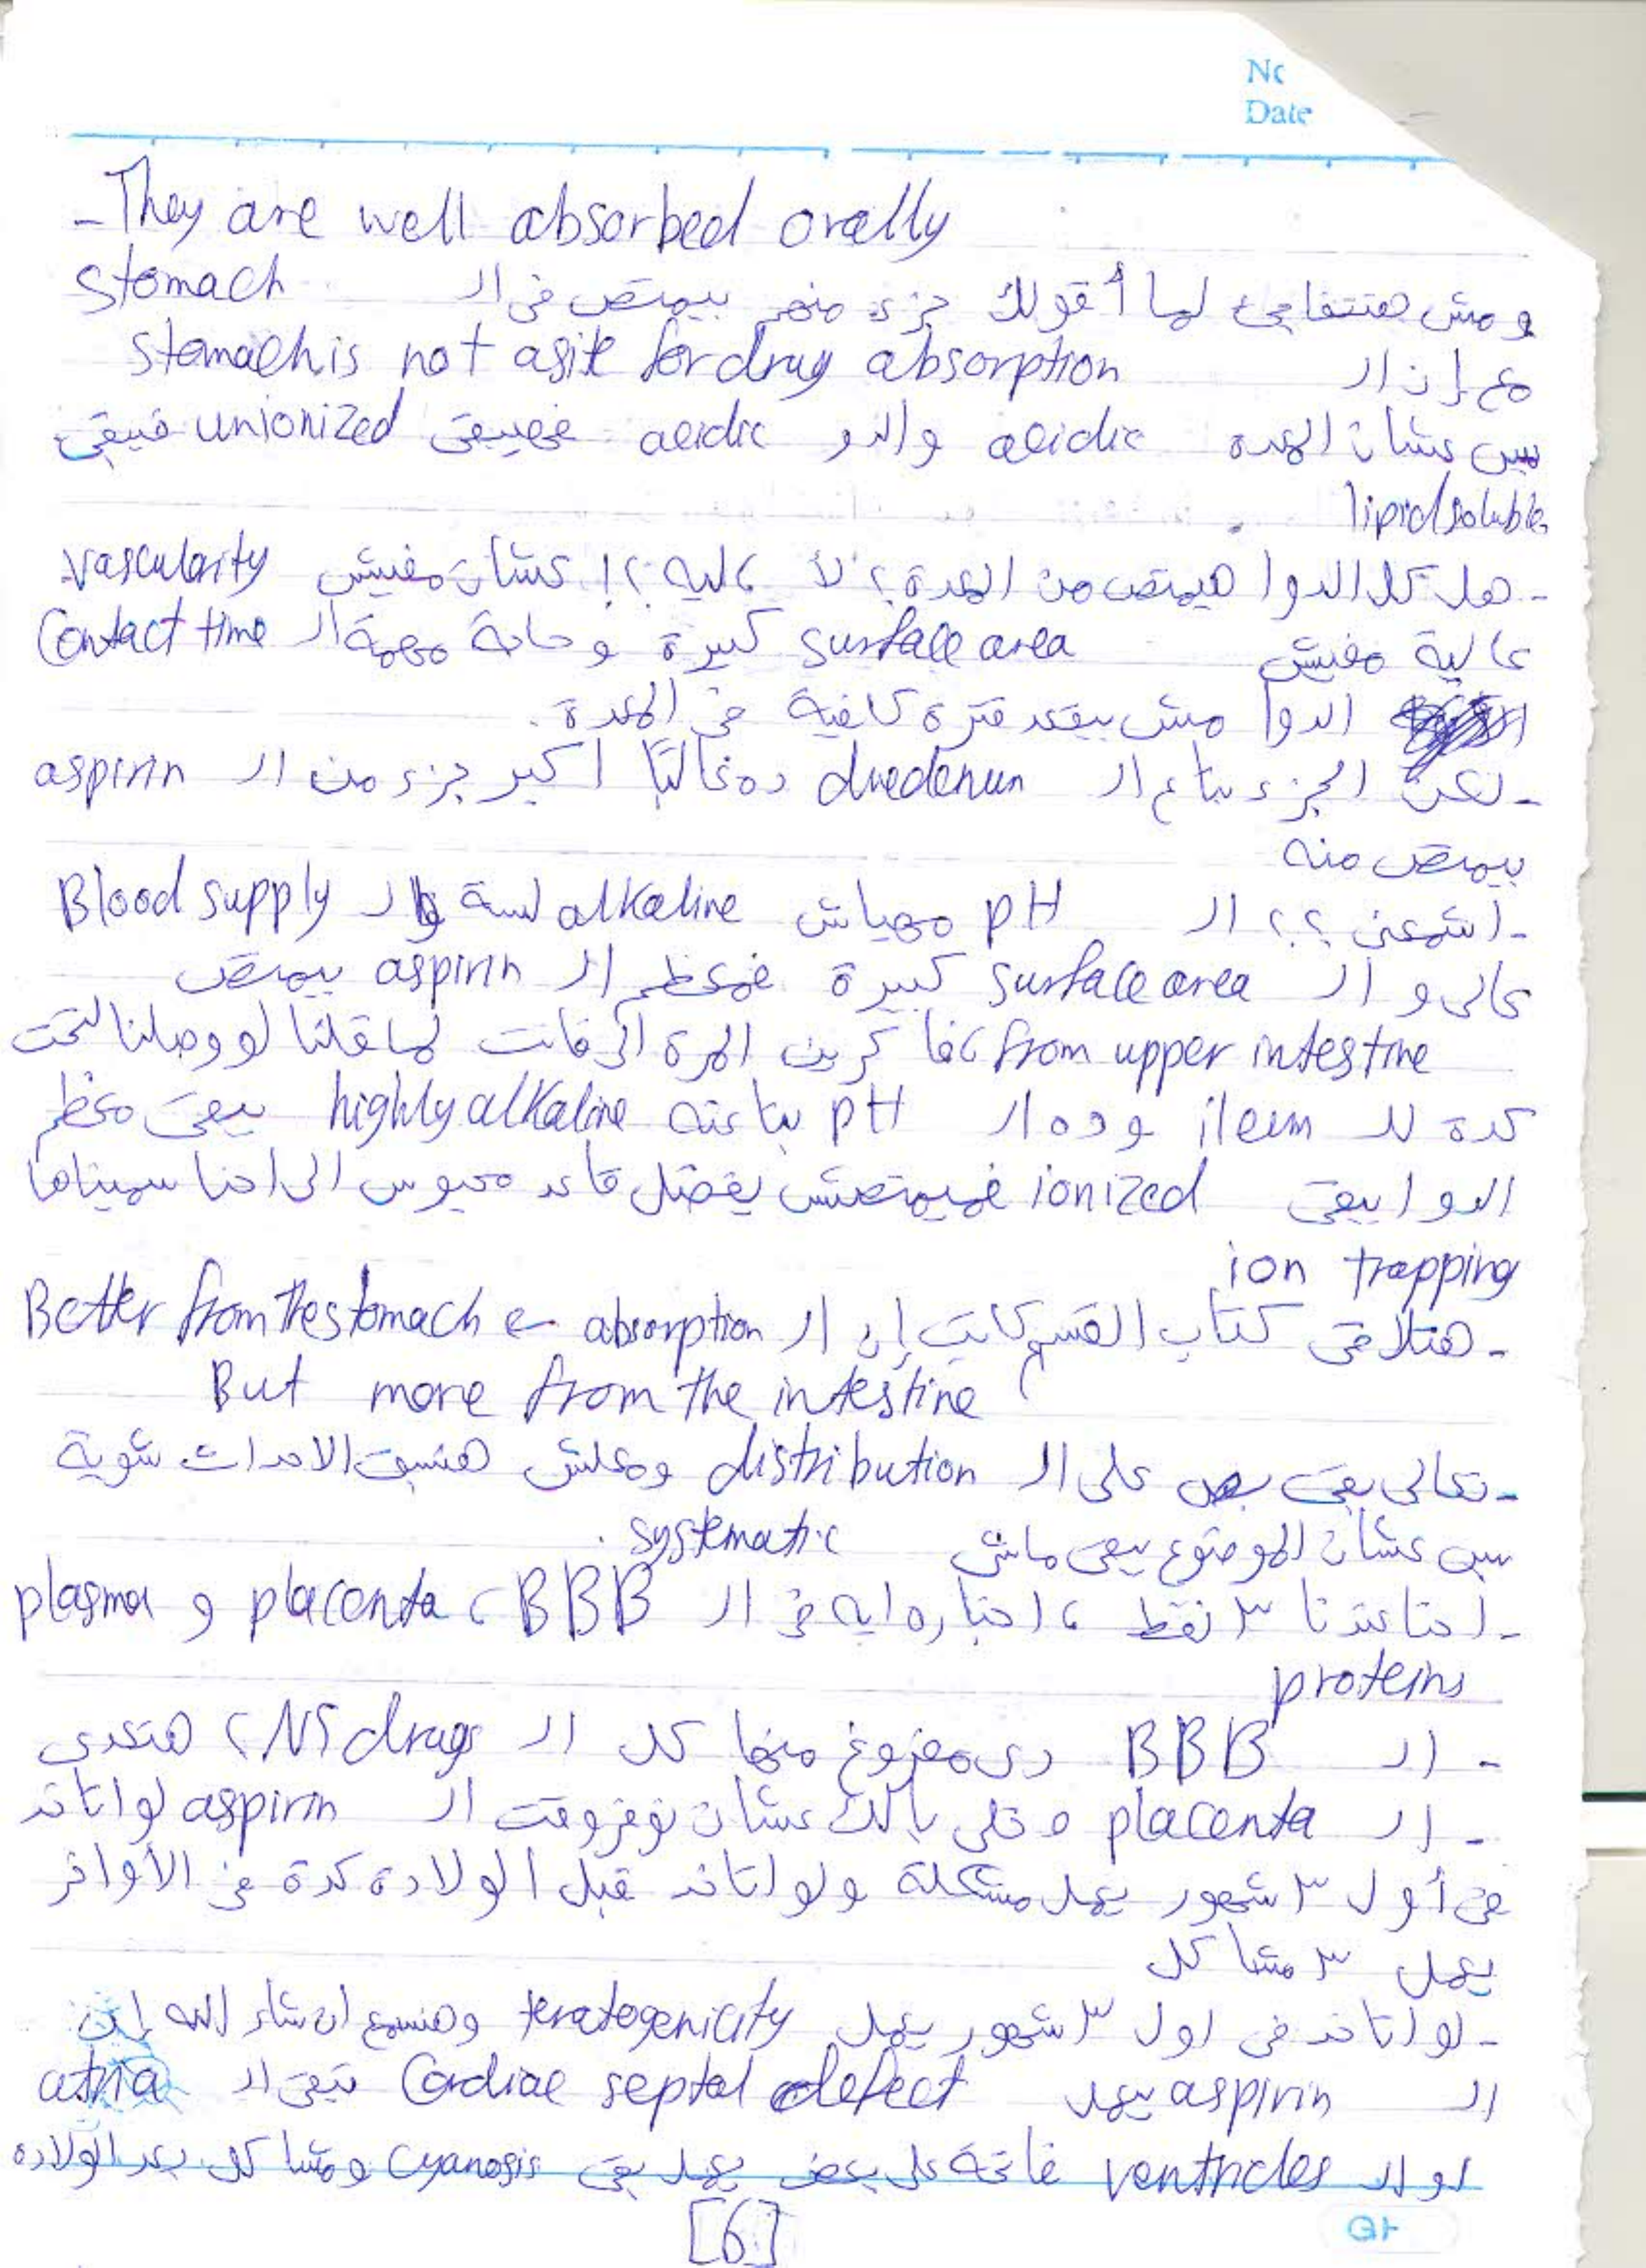 No
Date
- They are well absorbed orally
ومش هتتفاجئ لما أقولك جزء منهم بيمتص فى ال stomach
مع إن ال stomach is not a site for drug absorption
بس عشان المعدة acidic والدوا acidic فهيبقى unionized فيبقى
lipid soluble
- هل كل الدوا هيمتص من المعدة؟ لأ، ليه؟! عشان مفيش vascularity
عالية مفيش surface area كبيرة و حاجة مهمة ال Contact time
الدوا مش بيقعد فترة كافية فى المعدة.
- لكن الجزء بتاع ال duedenun ده غالبًا أكبر جزء من ال aspirin
بيمتص منه
- اشمعنى؟؟ ال pH مهياش alkaline لسة وال Blood supply
عالى و ال surface area كبيرة فمعظم ال aspirin بيمتص
from upper intestine، فاكرين المرة الى فاتت لما قلنا لو وصلنا لتحت
كدة لل ileum وده ال pH بتاعته highly alkaline يبقى معظم
الدوا يبقى ionized فميمتصش يفضل قاعد محبوس الى احنا سميناها
ion trapping
- هتلاقى كتاب القسم كاتب إن ال absorption ← Better from the stomach
But more from the intestine
- تعالى بقى بص على ال distribution ومعلش هنسبق الاحداث شوية
بس عشان الموضوع يبقى ماشى systematic.
- احنا عندنا ٣ نقط، اخباره ايه فى ال BBB، placenta و plasma
proteins
- ال BBB دى مفروغ منها كل ال CNS drugs هتعدى
- ال placenta وخلى بالك عشان توفروقت ال aspirin لو اتاخد
فى أول ٣ شهور يعمل مشكلة ولو اتاخد قبل الولادة كدة فى الأواخر
يعمل ٣ مشاكل
- لو اتاخد فى اول ٣ شهور يعمل teratogenicity وهنسمع ان شاء الله إن
ال aspirin يعمل Cardiac septal defect تبقى ال atria
او ال ventricles فاتحة على بعض يعمل بقى cyanosis ومشاكل بعد الولادة
[6]